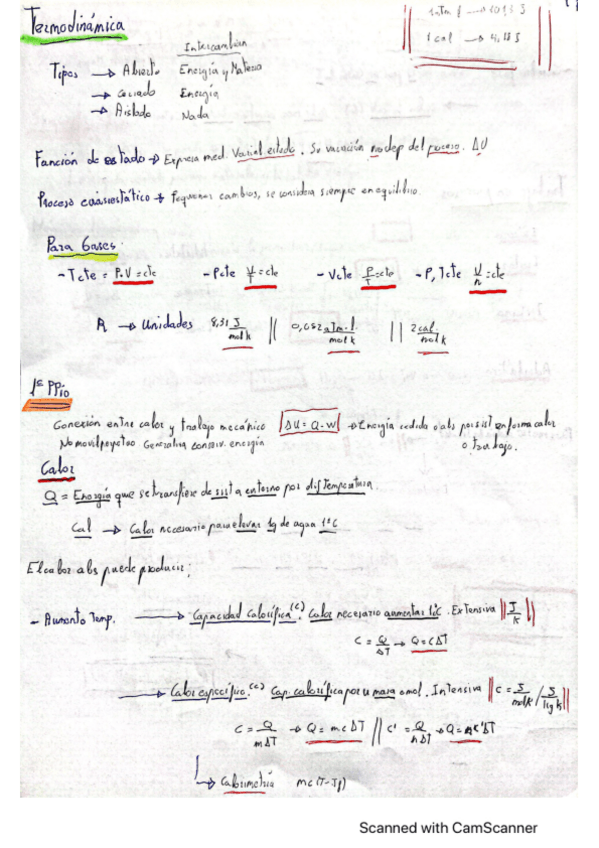 Termodinámica
1 atm l → 101'3 J
1 cal → 4,18 J
Intercambian
Tipos → Abierto Energía y Materia
→ Cerrado Energía
→ Aislado Nada
Función de estado → Expresa med. Variab. estado. Su variación no dep del proceso. ΔU
Proceso cuasiestático → Pequeños cambios, se considera siempre en equilibrio.
Para Gases:
- T cte = P.V = cte - P cte V/T = cte - V cte P/T = cte - P, T cte V/n = cte
R → Unidades 8,31 J/mol k || 0,082 atm.l/mol k || 2 cal/mol k
1er PPio
Conexión entre calor y trabajo mecánico ΔU = Q - W → Energía cedida o abs por sist en forma calor
No movil perpetuo Generaliza conserv. energía o trabajo.
Calor
Q = Energía que se transfiere de sist a entorno por dif Temperatura.
Cal → Calor necesario para elevar 1g de agua 1ºC
El calor abs puede producir:
- Aumento Temp. → Capacidad Calorífica (C). Calor necesario aumentar 1ºC. Extensiva || J/k ||
C = Q/ΔT → Q = CΔT
→ Calor específico (c) Cap. calorífica por u masa o mol. Intensiva || c = J/mol k / J/kg k ||
c = Q/mΔT → Q = mcΔT // c' = Q/nΔT → Q = nc'ΔT
→ Calorimetría mc(T-Tf)
Scanned with CamScanner